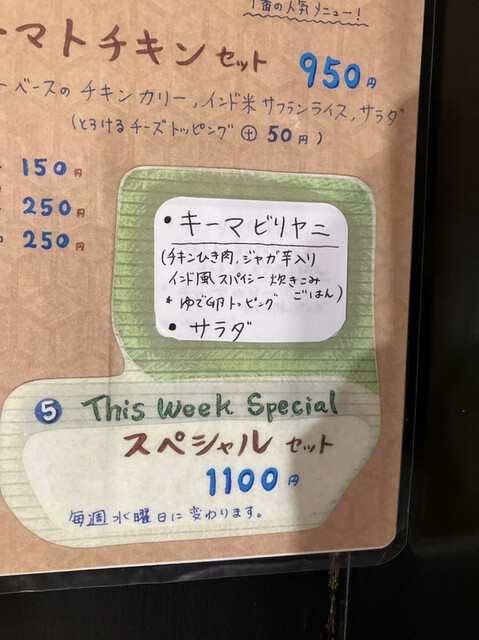 1番の人気メニュー!
ーマトチキン セット 950円
ーベースの チキンカリー, インド米 サフランライス, サラダ
(とろけるチーズトッピング ⊕ 50円)
150円
250円
250円
• キーマ ビリヤニ
(チキンひき肉, ジャガ芋入り
インド風 スパイシー 炊きこみ
ごはん)
* ゆで卵トッピング
• サラダ
5 This Week Special
スペシャル セット
1100円
毎週水曜日に変わります。